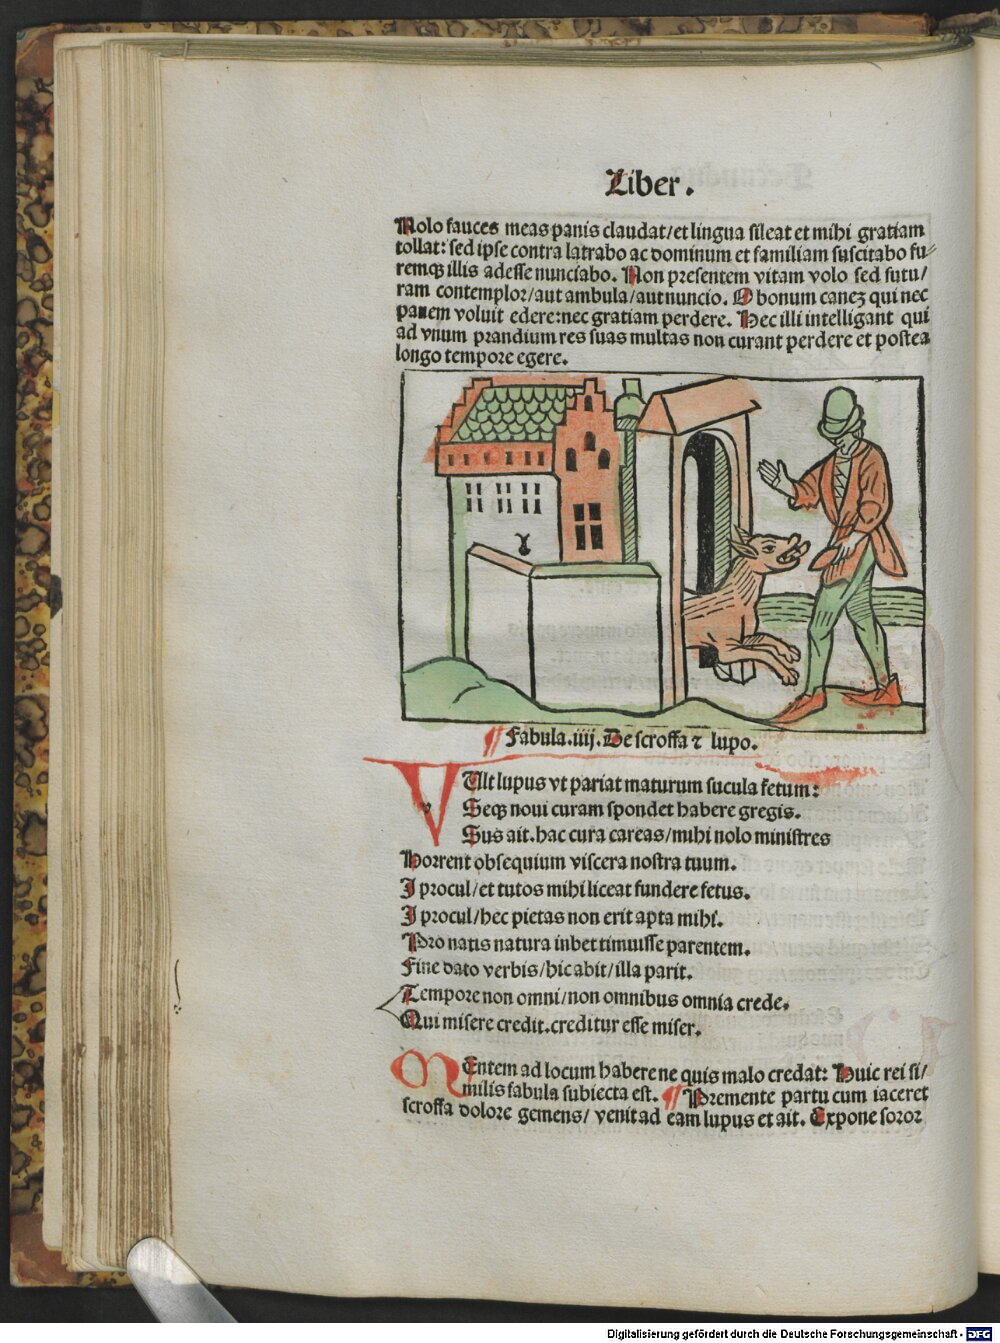 Liber.
Nolo fauces meas panis claudat/et lingua sileat et mihi gratiam
tollat: sed ipse contra latrabo ac dominum et familiam suscitabo fu⸗
remqꝫ illis adesse nunciabo. Non presentem vitam volo sed futu/
ram contemplor/aut ambula/aut nuncio. O bonum caneꝫ qui nec
panem voluit edere:nec gratiam perdere. Hec illi intelligant qui
ad vnum prandium res suas multas non curant perdere et postea
longo tempore egere.
¶ Fabula.iiij.De scroffa ⁊ lupo.
VUlt lupus vt pariat maturum sucula fetum:
Seqꝫ noui curam spondet habere gregis.
Sus ait.hac cura careas/mihi nolo ministres
Horrent obsequium viscera nostra tuum.
I procul/et tutos mihi liceat fundere fetus.
I procul/hec pietas non erit apta mihi.
Pro natis natura iubet timuisse parentem.
Fine dato verbis/hic abit/illa parit.
Tempore non omni/non omnibus omnia crede.
Qui misere credit.creditur esse miser.
MEntem ad locum habere ne quis malo credat: Huic rei si/
milis fabula subiecta est. ¶ Premente partu cum iaceret
scroffa dolore gemens/ venit ad eam lupus et ait. Expone soror
Digitalisierung gefördert durch die Deutsche Forschungsgemeinschaft - DFG